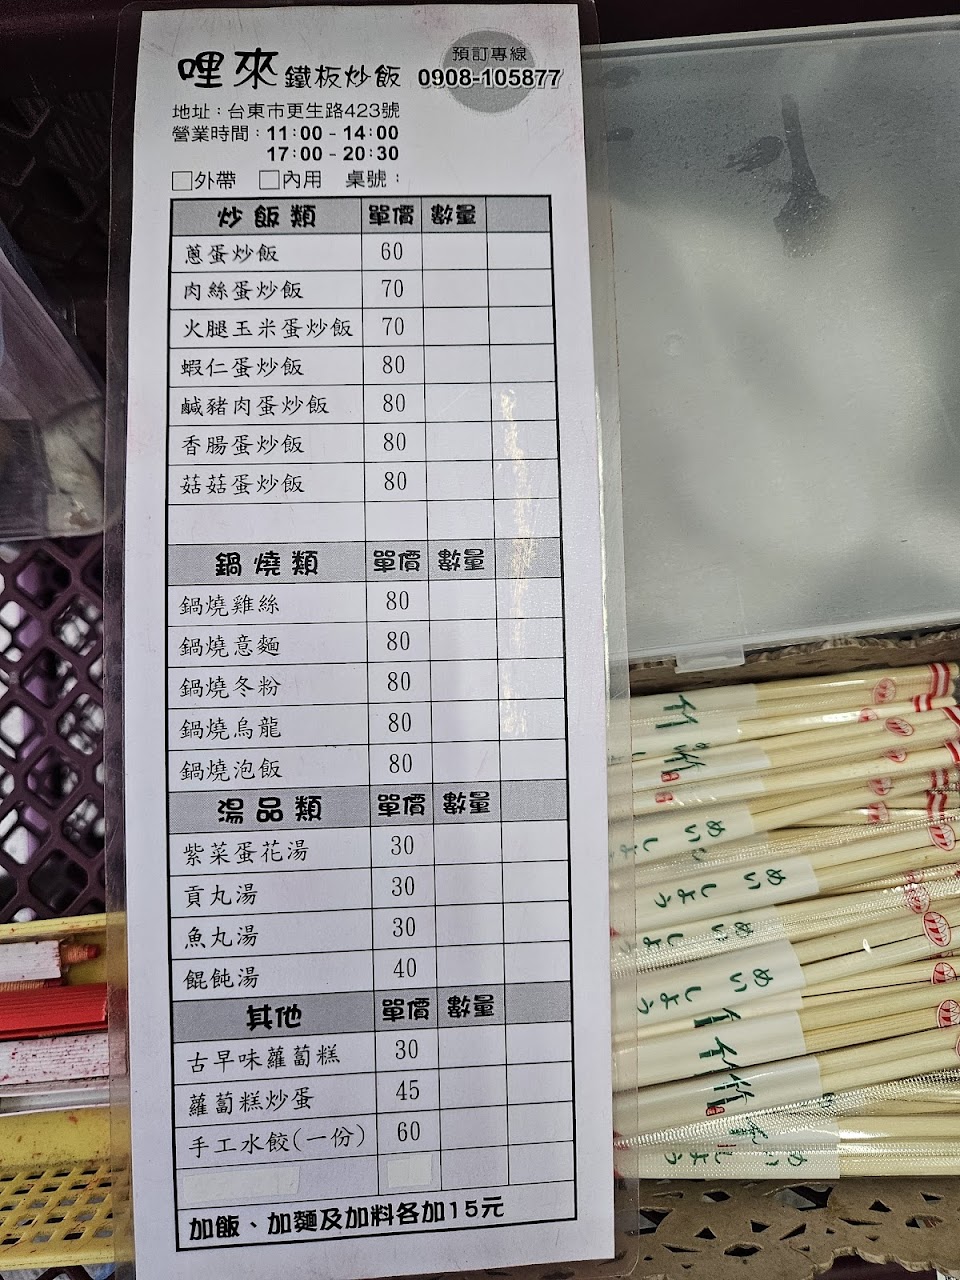 哩來鐵板炒飯
預訂專線
0908-105877
地址：台東市更生路423號
營業時間：11:00-14:00
17:00-20:30
□外帶 □內用 桌號：
炒飯類 單價 數量
蔥蛋炒飯 60
肉絲蛋炒飯 70
火腿玉米蛋炒飯 70
蝦仁蛋炒飯 80
鹹豬肉蛋炒飯 80
香腸蛋炒飯 80
菇菇蛋炒飯 80
鍋燒類 單價 數量
鍋燒雞絲 80
鍋燒意麵 80
鍋燒冬粉 80
鍋燒烏龍 80
鍋燒泡飯 80
湯品類 單價 數量
紫菜蛋花湯 30
貢丸湯 30
魚丸湯 30
餛飩湯 40
其他 單價 數量
古早味蘿蔔糕 30
蘿蔔糕炒蛋 45
手工水餃(一份) 60
加飯、加麵及加料各加15元
竹
竹
めい
しょ
めい
しょう
めい
しょう
めい
しょう
竹
竹
めい
しょう